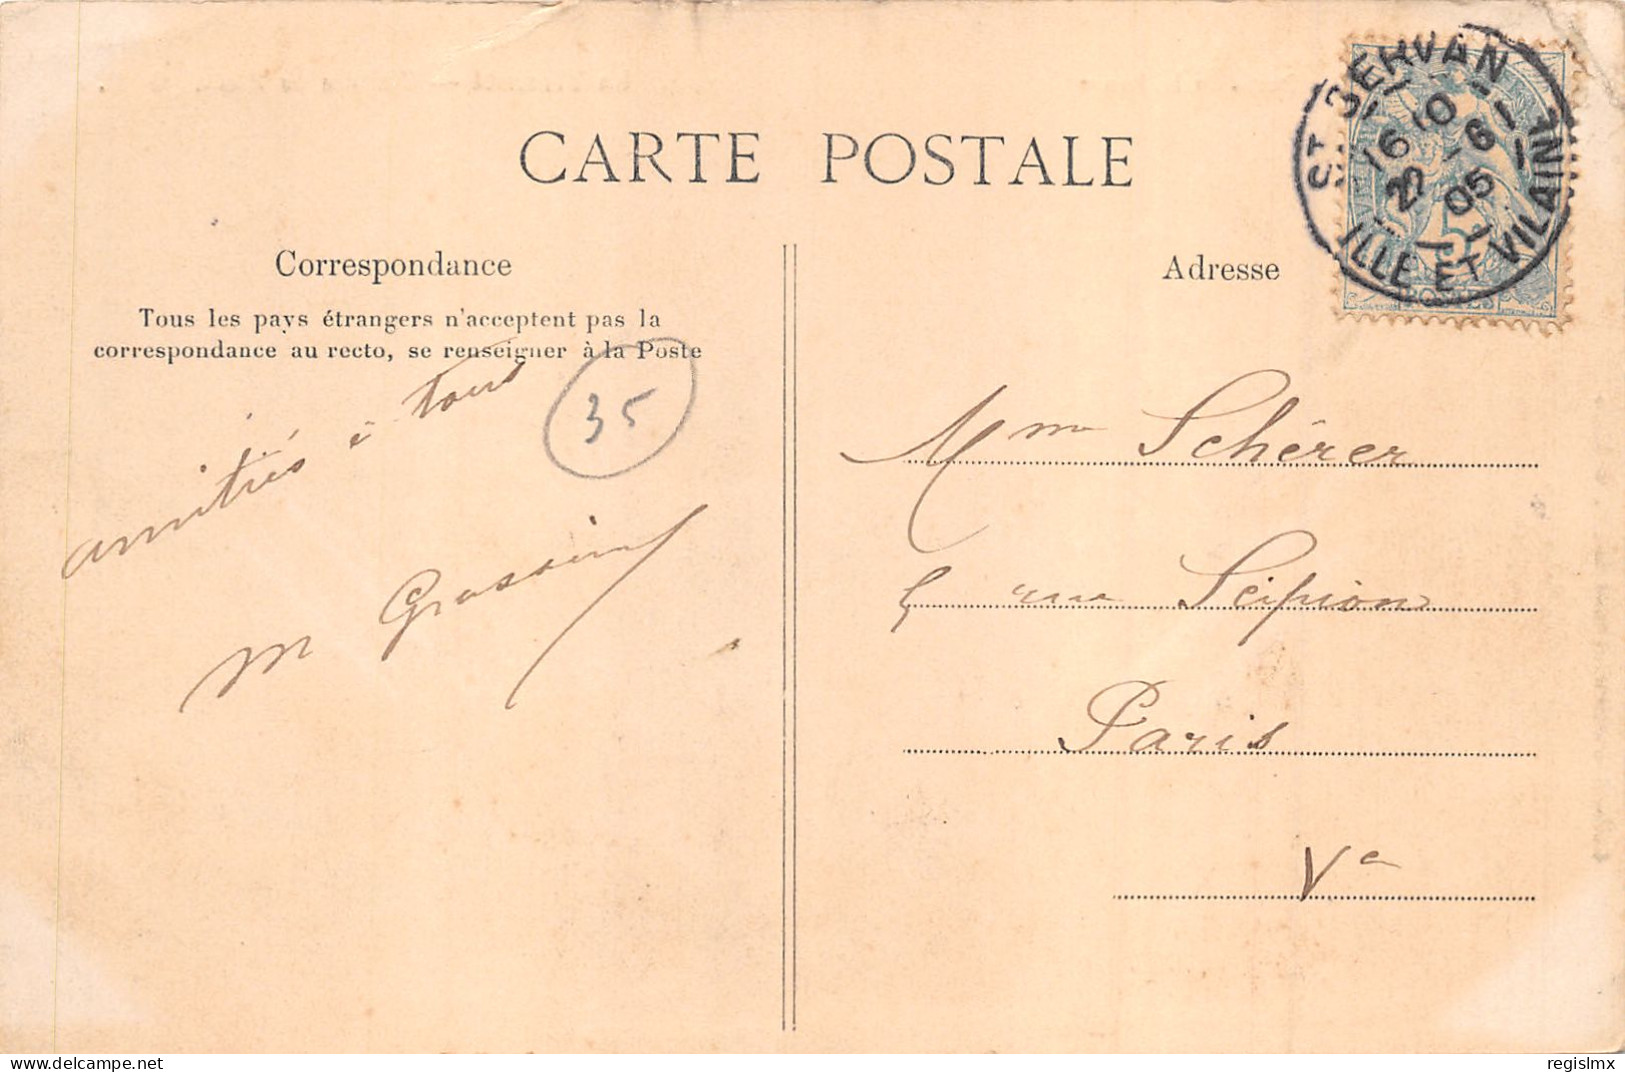 CARTE POSTALE
Correspondance
Tous les pays étrangers n'acceptent pas la
correspondance au recto, se renseigner à la Poste
amitiés à tous
35
M Grassin
Adresse
ST SERVAN
16 10
22 -6
05
ILLE ET VILAINE
5
POSTES
Mme Schérer
5 rue Scipion
Paris
Ve
delcampe.net
regislmx